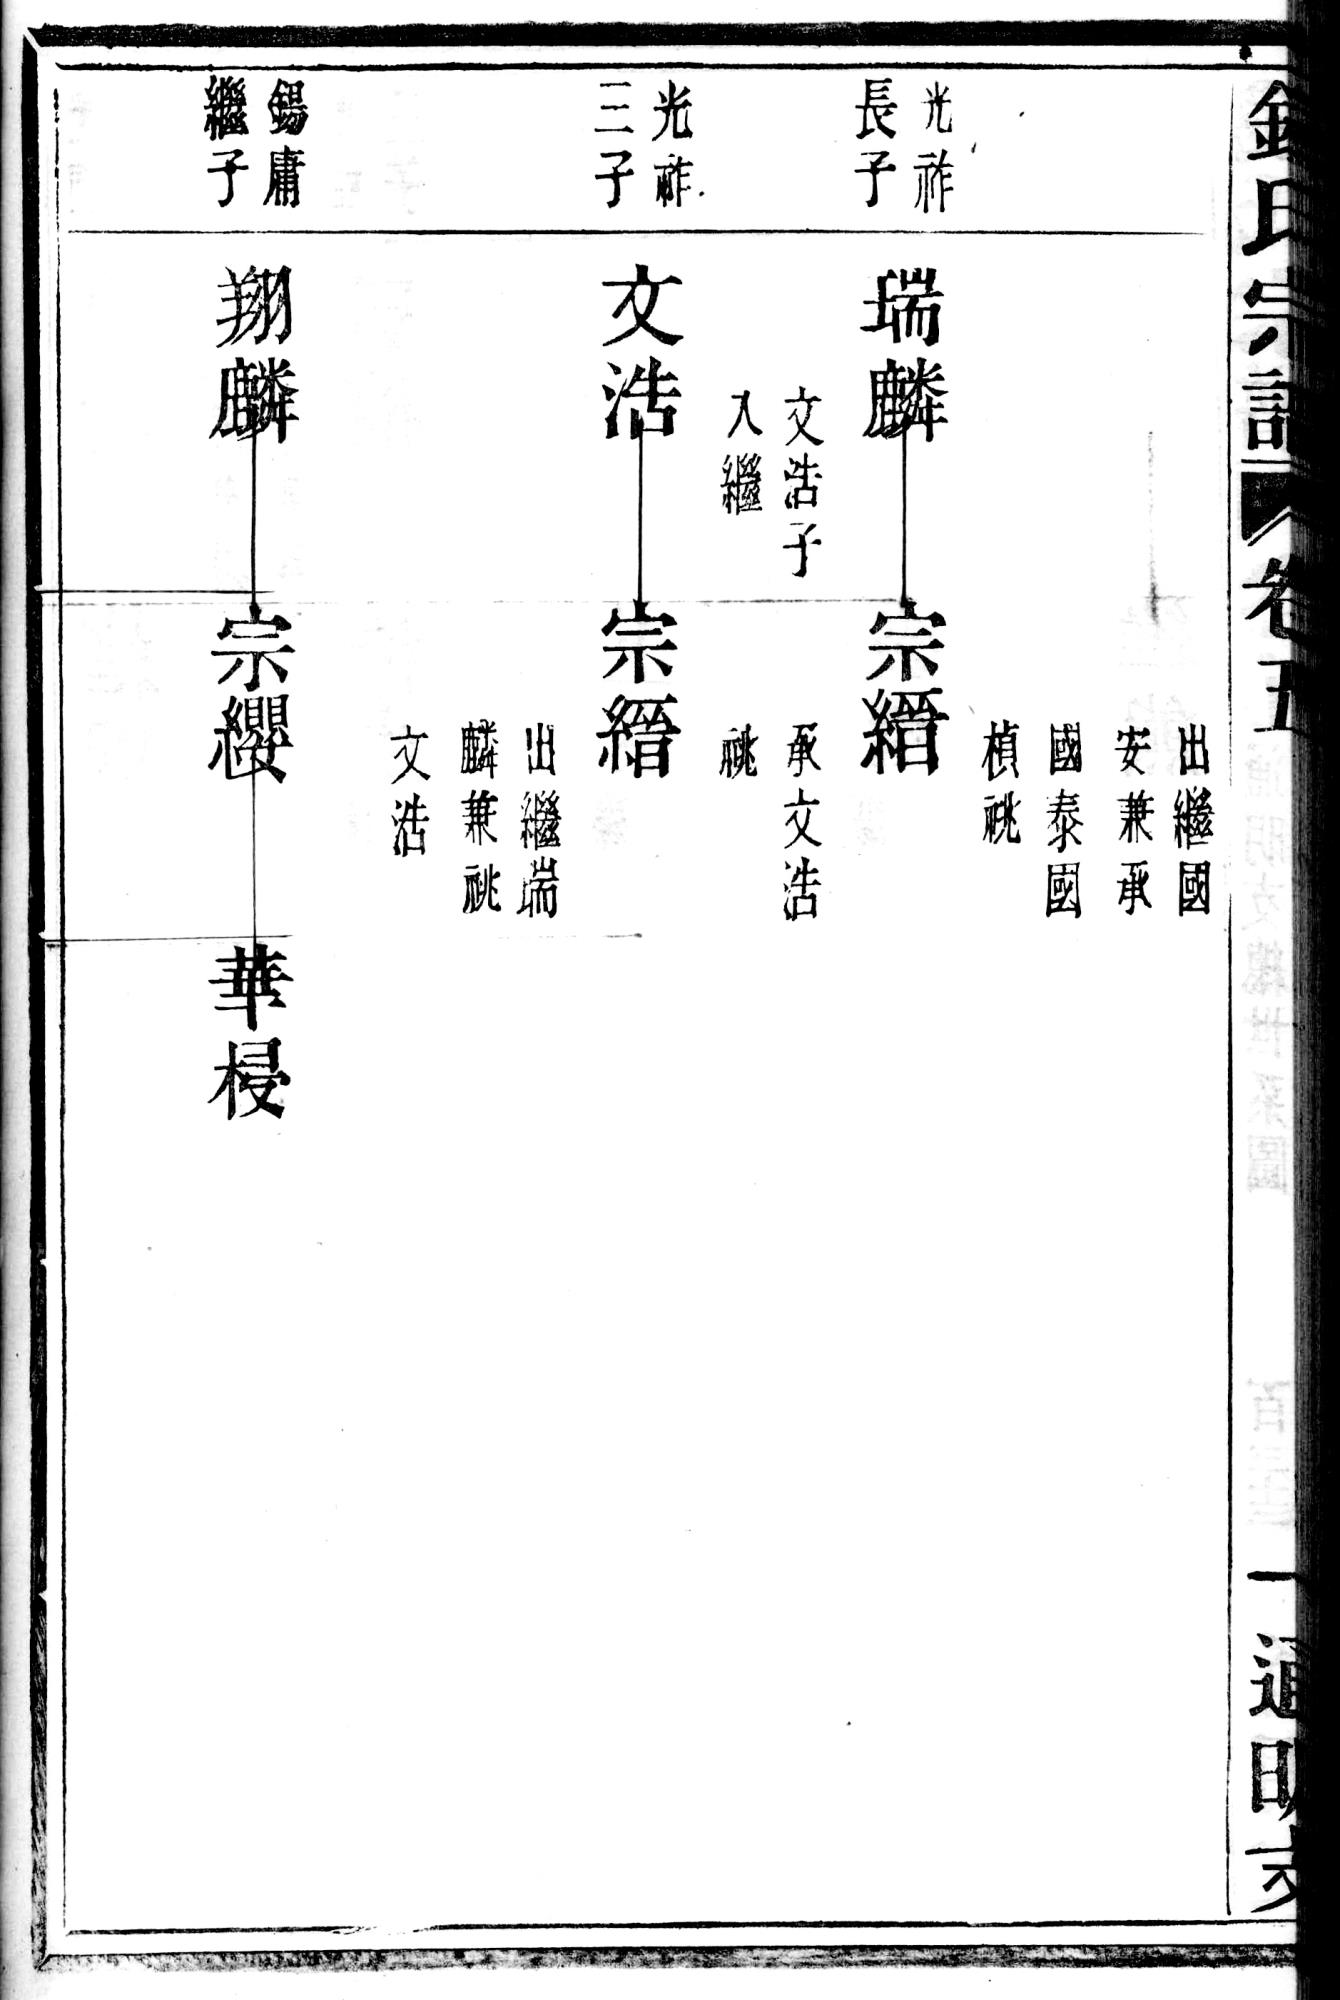 氏宗譜 卷五
一 通明支
出繼國
安兼承
國泰國
楨祧
光祚
長子
瑞麟
宗縉
承文浩
祧
文浩子
入繼
光祚
三子
文浩
宗縉
出繼瑞
麟兼祧
文浩
錫庸
繼子
翔麟
宗纓
華梫